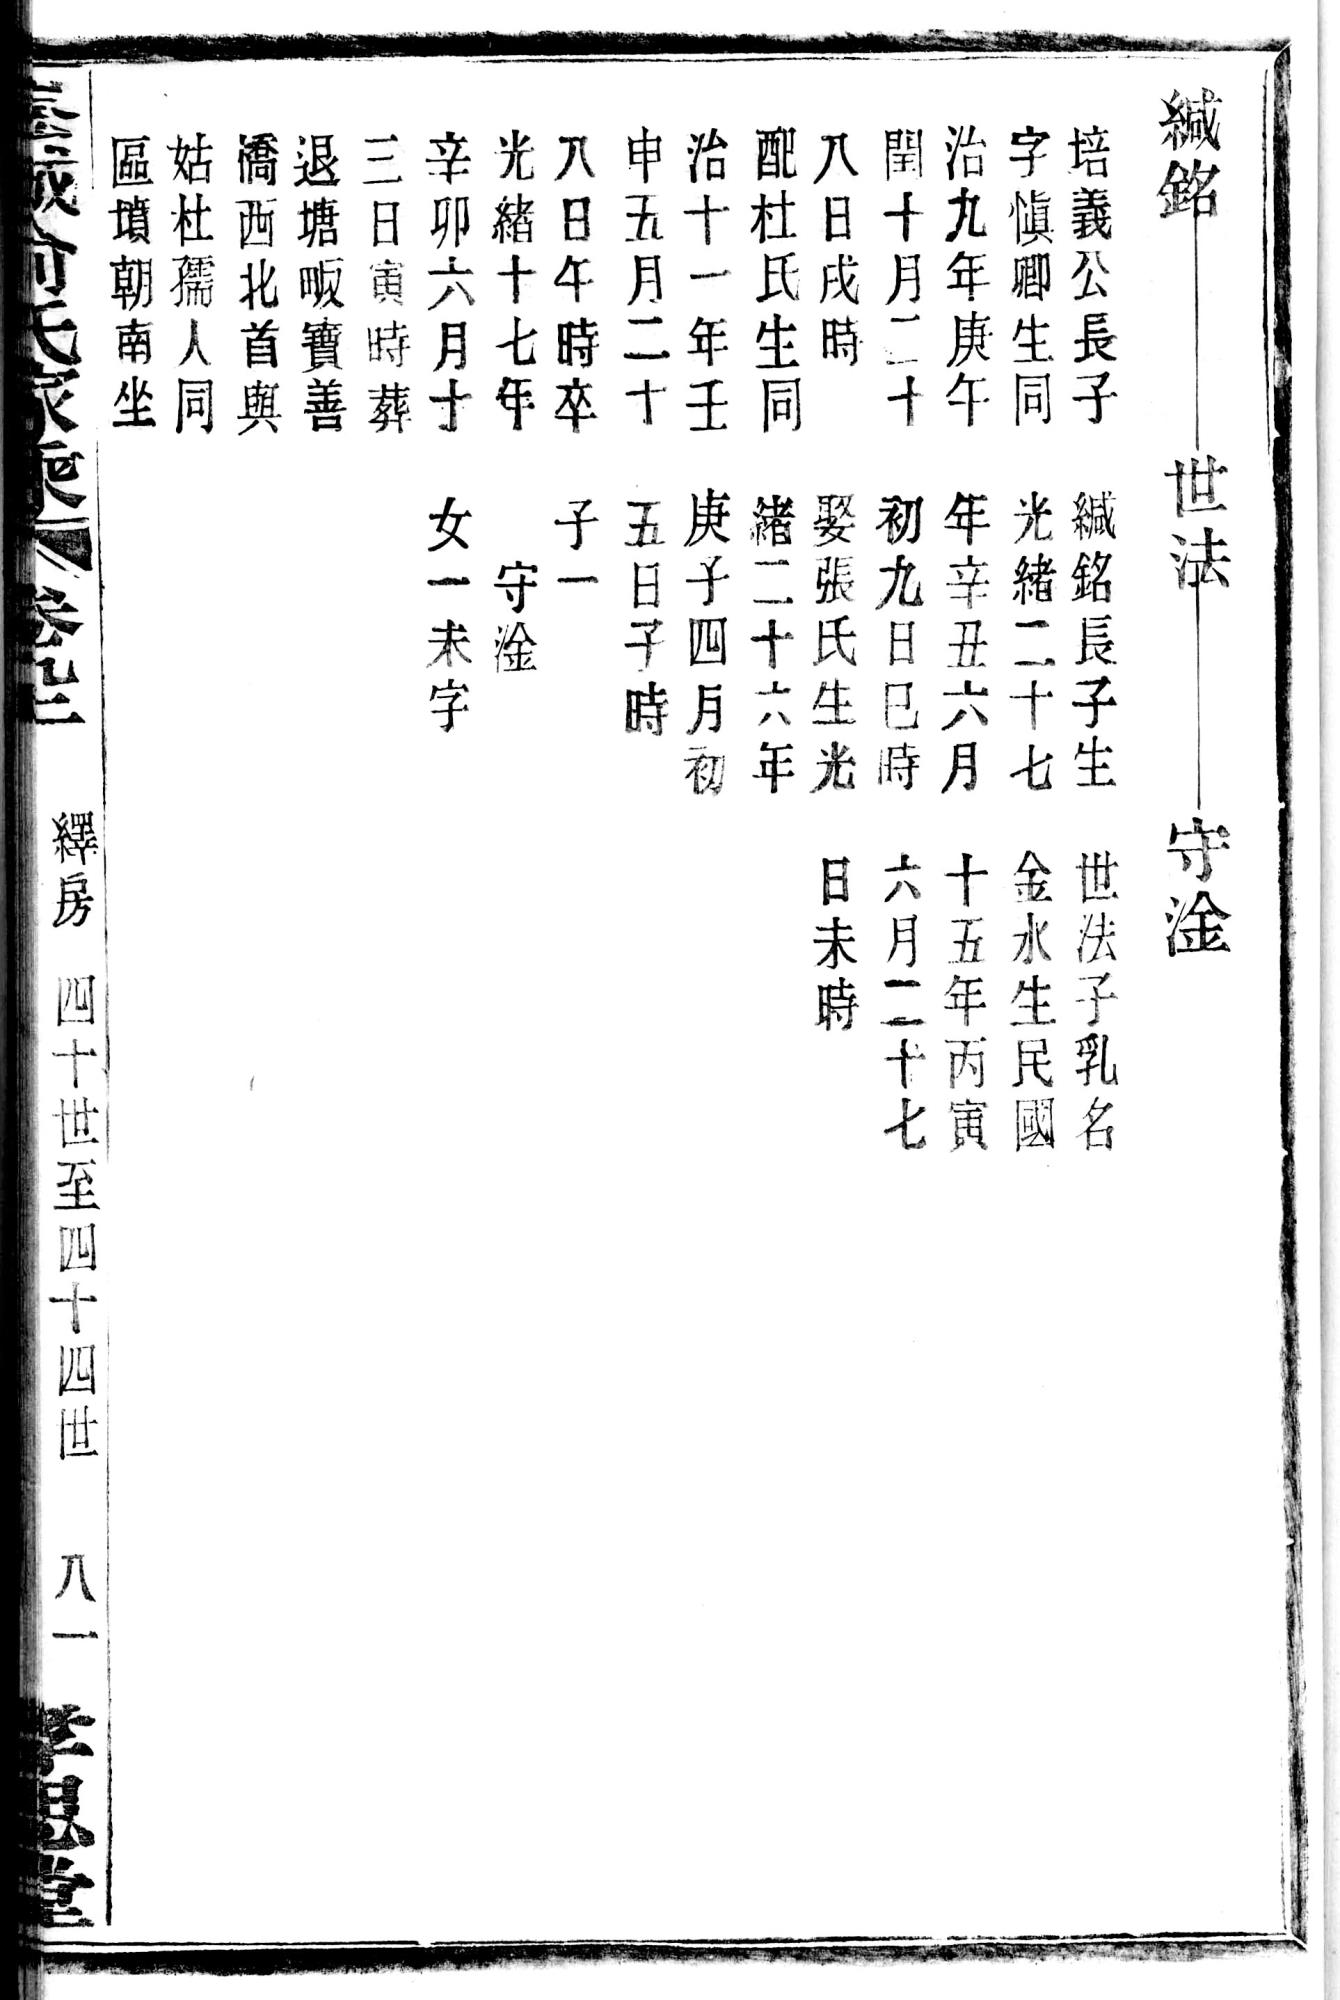 緘銘 世法 守淦
培義公長子
字慎卿生同
治九年庚午
閏十月二十
八日戌時
配杜氏生同
治十一年壬
申五月二十
八日午時卒
光緒十七年
辛卯六月十
三日寅時葬
退塘畈寶善
橋西北首與
姑杜孺人同
區墳朝南坐
緘銘長子生
光緒二十七
年辛丑六月
初九日巳時
娶張氏生光
緒二十六年
庚子四月初
五日子時
子一
守淦
女一未字
世法子乳名
金水生民國
十五年丙寅
六月二十七
日未時
俞氏家乘 卷 繹房 四十世至四十四世 八一 孝思堂